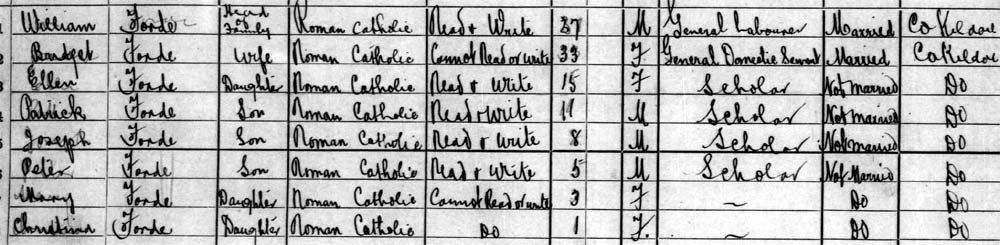 1 William Forde Head of Family Roman Catholic Read & Write 37 M General Labourer Married Co Kildare
2 Bridget Forde Wife Roman Catholic Cannot Read or write 33 F General Domestic Servant Married Co Kildare
3 Ellen Forde Daughter Roman Catholic Read & Write 15 F Scholar Not Married Do
4 Patrick Forde Son Roman Catholic Read & Write 11 M Scholar Not married Do
5 Joseph Forde Son Roman Catholic Read & Write 8 M Scholar Not married Do
Peter Forde Son Roman Catholic Read & Write 5 M Scholar Not Married Do
Mary Forde Daughter Roman Catholic Cannot Read or write 3 F ~ Do Do
Christina Forde Daughter Roman Catholic Do 1 F. ~ Do Do